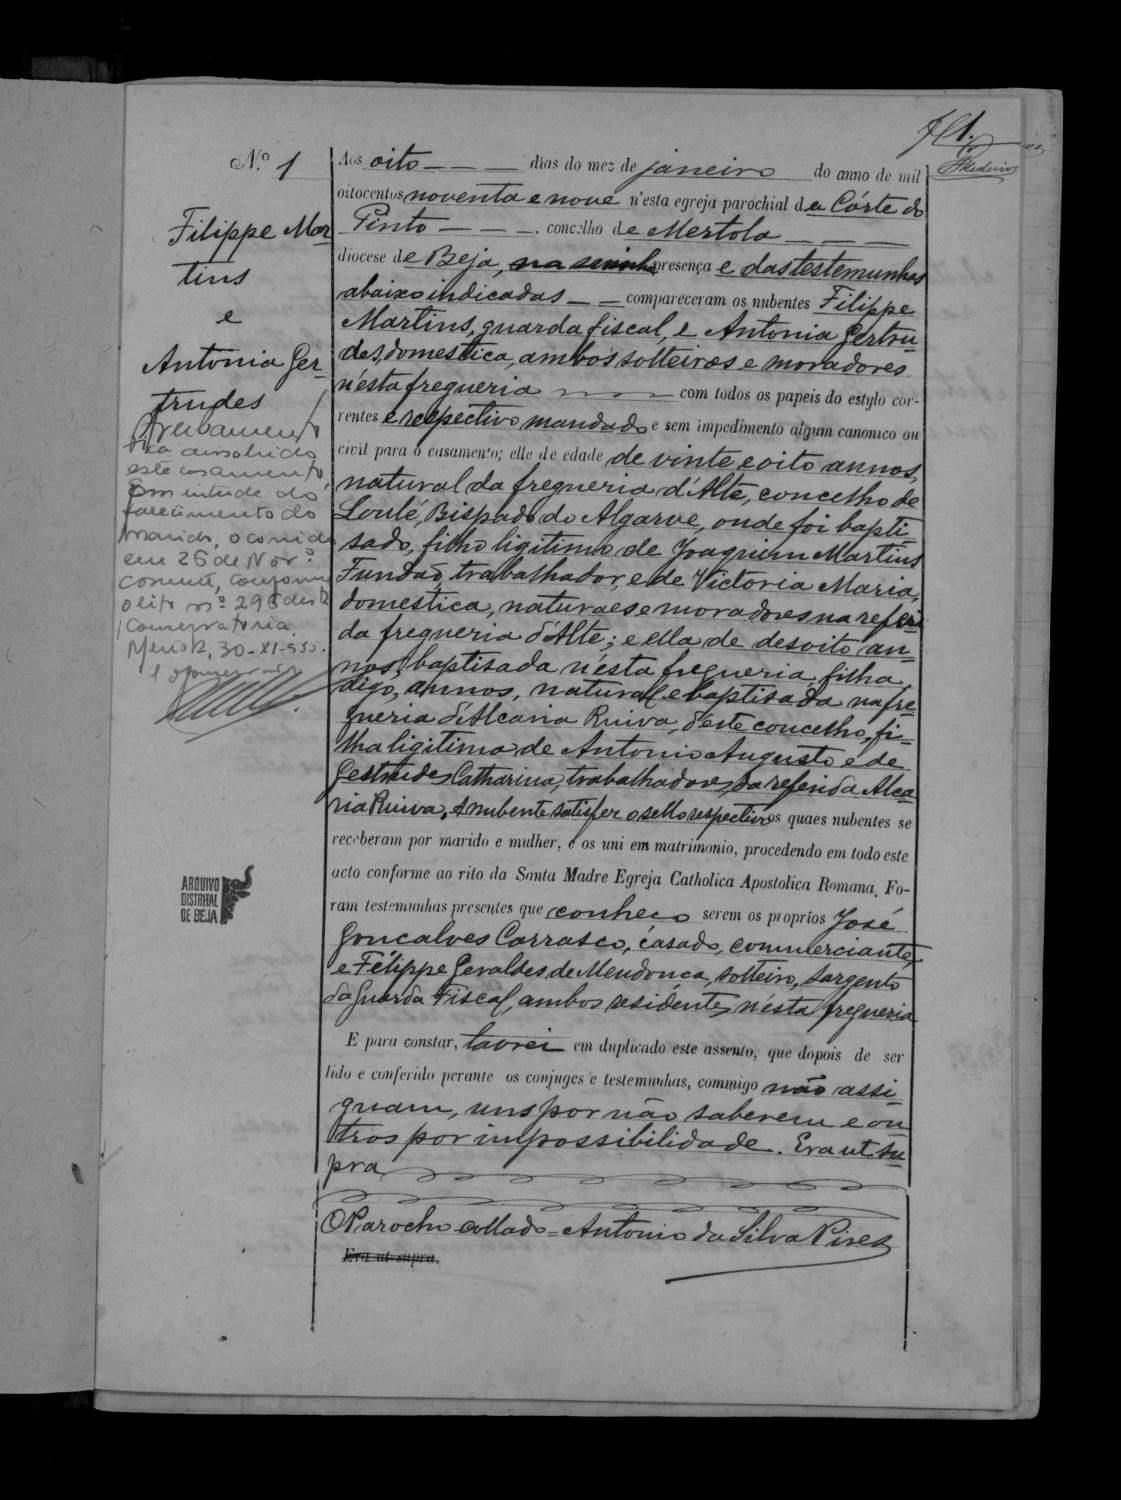 fl 1.
Medeiros
Nº 1
Filippe Mar
tins
e
Antonia Ger_
trudes
este casamento,
em virtude do
falecimento do
marido, ocorrido
em 26 de Novº
corrente, conforme
Conservatoria.
30-XI-950.
ARQUIVO
DISTRITAL
DE BEJA
Aos oito _ _ _ dias do mez de janeiro do anno de mil
oitocentos noventa e nove n'esta egreja parochial da Córte do
Pinto _ _ _ . concelho de Mertola _ _ _
diocese de Beja, na minha presença e das testemunhas
abaixo indicadas _ _ compareceram os nubentes Filippe
Martins, guarda fiscal, e Antonia Gertru_
des, domestica, ambos solteiros e moradores
n'esta fregueria com todos os papeis do estylo cor-
rentes e respectivo mandado e sem impedimento algum canonico ou
civil para o casamento; elle de edade de vinte e oito annos,
natural da fregueria d'Alte, concelho de
Loulé, Bispado do Algarve, onde foi bapti_
sado, filho ligitimo de Joaquim Martins
Fundaõ, trabalhador, e de Victoria Maria,
domestica, naturaes e moradores na referi
da fregueria d'Alte; e ella de desoito an_
nos, baptisada n'esta fregueria, filha,
digo, annos, natural e baptisada na fre_
gueria d'Alcaria Ruiva, d'este concelho, fi_
lha ligitima de Antonio Augusto e de
Gestrudes Catharina, trabalhadores, da referida Alca_
ria Ruiva, O nubente satisfez o sello respectivo os quaes nubentes se
receberam por marido e mulher, e os uni em matrimonio, procedendo em todo este
acto conforme ao rito da Santa Madre Egreja Catholica Apostolica Romana. Fo-
ram testemunhas presentes que conheço serem os proprios José
Goncalves Carrasco, casado, commerciante,
e Felippe Geraldes de Mendonca, solteiro, sargento
da Guarda Fiscal, ambos residentes n'esta fregueria
E para constar, lavrei em duplicado este assento, que dopois de ser
lido e conferido perante os conjuges e testemunhas, commigo não assi_
gnam, uns por não saberem e ou_
tros por impossibilidade. Era ut su_
pra
O Parocho collado = Antonio da Silva Pires
Era ut supra.